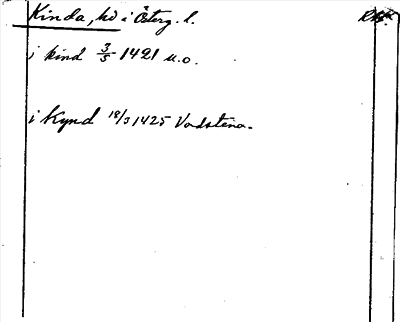 Kinda, hd i Österg. l.
i kind 3/5 1421 u.o.
i Kynd 18/3 1425 Vadstena.